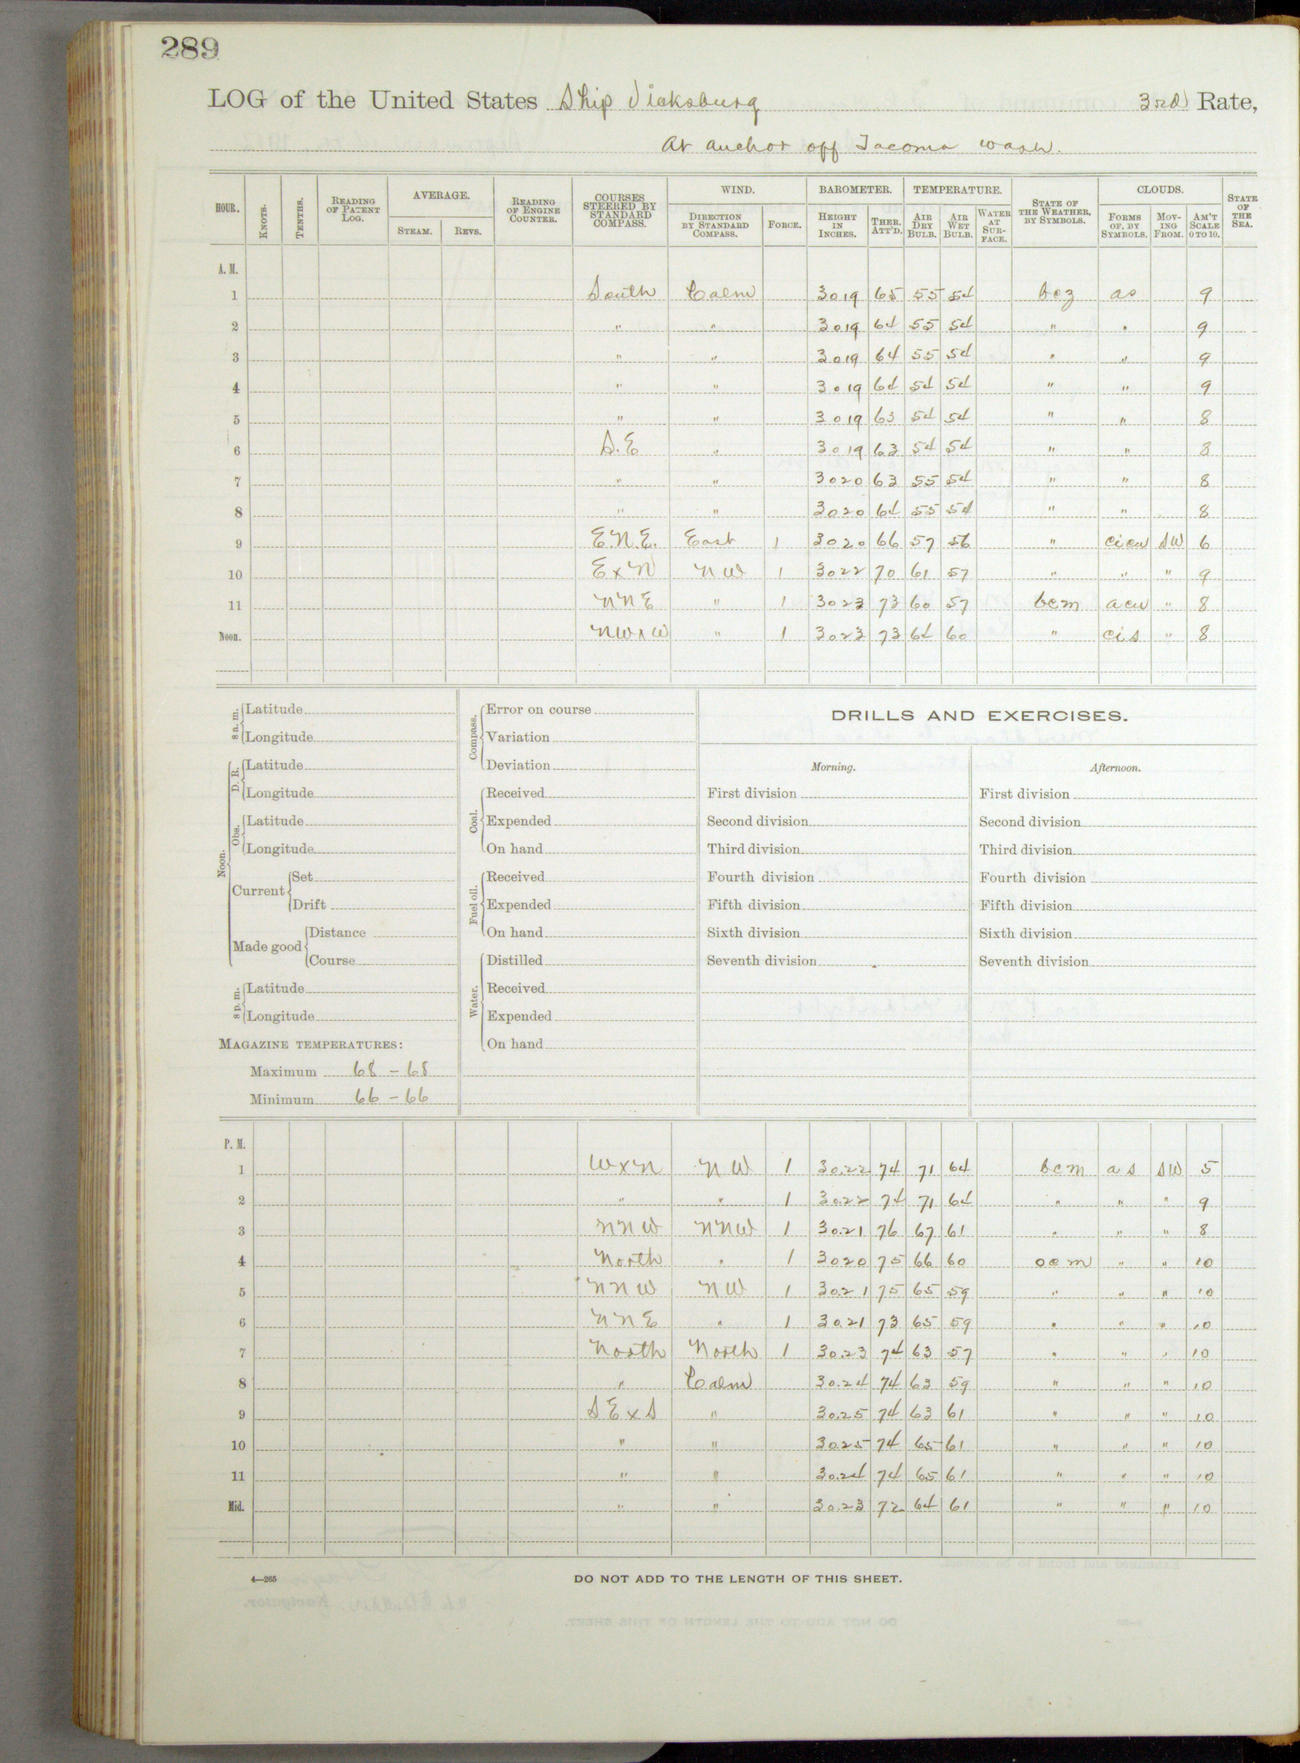 289
LOG of the United States Ship Vicksburg 3rd Rate,
At anchor off Tacoma Wash.
HOUR. KNOTS. TENTHS. READING OF PATENT LOG. AVERAGE. STEAM. REVS. READING OF ENGINE COUNTER. COURSES STEERED BY STANDARD COMPASS. WIND. DIRECTION BY STANDARD COMPASS. FORCE. BAROMETER. HEIGHT IN INCHES. THER. ATT'D. TEMPERATURE. AIR DRY BULB. AIR WET BULB. WATER AT SURFACE. STATE OF THE WEATHER, BY SYMBOLS. CLOUDS. FORMS OF, BY SYMBOLS. MOVING FROM. AM'T SCALE 0 TO 10. STATE OF THE SEA.
A. M.
1 South Calm 3019 65 55 54 bcz as 9
2 " " 3019 64 55 54 " " 9
3 " " 3019 64 55 54 " " 9
4 " " 3019 64 54 54 " " 9
5 " " 3019 63 54 54 " " 8
6 S.E " 3019 63 54 54 " " 8
7 " " 3020 63 55 54 " " 8
8 " " 3020 64 55 54 " " 8
9 E.N.E. East 1 3020 66 57 56 " cicu SW 6
10 ExN NW 1 3022 70 61 57 " " " 9
11 NNE " 1 3023 73 60 57 bcm acu " 8
Noon. NWxW " 1 3023 73 64 60 " cis " 8
8 a. m. Latitude
Longitude
Noon. D. R. Latitude
Longitude
Obs. Latitude
Longitude
Current Set
Drift
Made good Distance
Course
8 p. m. Latitude
Longitude
MAGAZINE TEMPERATURES:
Maximum 68 - 68
Minimum 66 - 66
Compass. Error on course
Variation
Deviation
Coal. Received
Expended
On hand
Fuel oil. Received
Expended
On hand
Water. Distilled
Received
Expended
On hand
DRILLS AND EXERCISES.
Morning. Afternoon.
First division First division
Second division Second division
Third division Third division
Fourth division Fourth division
Fifth division Fifth division
Sixth division Sixth division
Seventh division Seventh division
P. M.
1 WxN NW 1 30.22 74 71 64 bcm as SW 5
2 " " 1 30.22 74 71 64 " " " 9
3 NNW NNW 1 30.21 76 67 61 " " " 8
4 North " 1 3020 75 66 60 ocm " " 10
5 NNW NW 1 30.21 75 65 59 " " " 10
6 NNE " 1 30.21 73 65 59 " " " 10
7 North North 1 30.23 74 63 57 " " " 10
8 " Calm 30.24 74 63 59 " " " 10
9 SExS " 30.25 74 63 61 " " " 10
10 " " 30.25 74 65 61 " " " 10
11 " " 30.24 74 65 61 " " " 10
Mid. " " 30.23 72 64 61 " " " 10
4—265
DO NOT ADD TO THE LENGTH OF THIS SHEET.